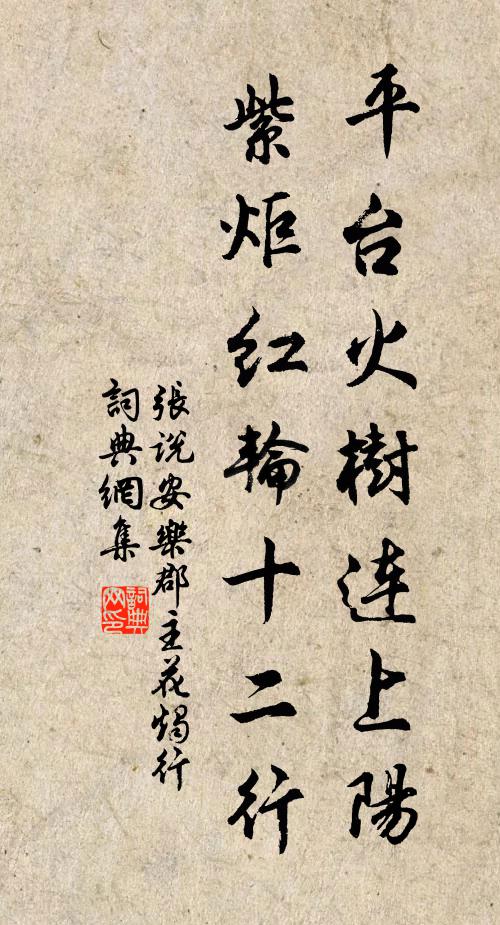 平台火樹連上陽
紫炬紅輪十二行
張說安樂郡主花燭行
詞典網集
詞典网印